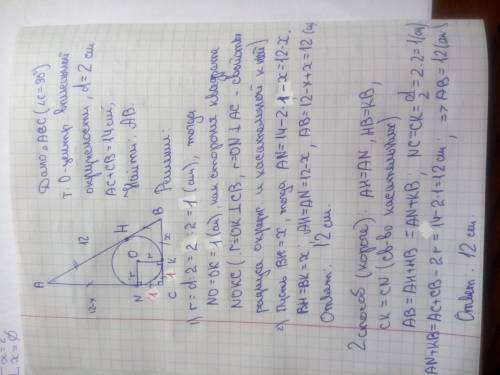 Дано: △ABC (∠C=90°)
т. O-центр вписанной
окружности, d=2 см
AC+CB=14 см,
Найти: AB.
Решение:
A
12
H
B
x
O
r
r
K
1
1
C
N
12-x
1) r=d:2=2:2=1 (см), тогда
NO=OK=1(см), как стороны квадрата
NOKC (r=OK⊥CB, r=ON⊥AC - свойство
радиуса окруж. и касательной к ней)
2) Пусть BK=x, тогда AN=14-2·1-x=12-x.
BH=BK=x; AH=AN=12-x, AB=12-x+x=12 (см)
Ответ: 12 см.
2 способ (короче): AH=AN, HB=KB,
CK=CN (св-во касательных)
AB=AH+HB=AN+KB; NC=CK=d/2=2:2=1(см)
AN+KB=AC+CB-2r=14-2·1=12см; => AB=12(см)
Ответ: 12 см.